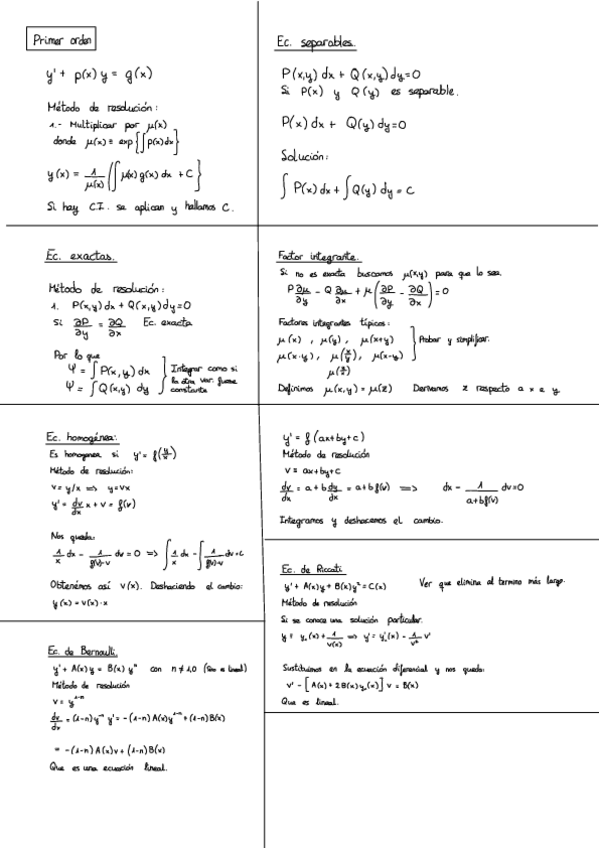 Primer orden
y' + p(x) y = g(x)
Método de resolución:
1.- Multiplicar por μ(x)
donde μ(x) = exp{∫p(x)dx}
y(x) = 1/μ(x) {∫ μ(x) g(x) dx + C}
Si hay C.I. se aplican y hallamos C.
Ec. separables.
P(x,y) dx + Q(x,y) dy = 0
Si P(x) y Q(y) es separable.
P(x) dx + Q(y) dy = 0
Solución:
∫ P(x) dx + ∫ Q(y) dy = C
Ec. exactas.
Método de resolución:
1. P(x,y) dx + Q(x,y) dy = 0
Si ∂P/∂y = ∂Q/∂x Ec. exacta
Por lo que
Ψ = ∫ P(x,y) dx
Ψ = ∫ Q(x,y) dy
} Integrar como si
la otra var. fuese
constante
Factor integrante.
Si no es exacta buscamos μ(x,y) para que lo sea.
P ∂μ/∂y - Q ∂μ/∂x + μ (∂P/∂y - ∂Q/∂x) = 0
Factores integrantes típicos:
μ(x), μ(y), μ(x+y)
μ(x·y), μ(x/y), μ(x-y)
} Probar y simplificar.
Definimos μ(x,y) = μ(z) Derivamos z respecto a x e y.
Ec. homogénea:
Es homogenea si y' = f(y/x)
Método de resolución:
v = y/x => y = vx
y' = dv/dx x + v = f(v)
Nos queda:
1/x dx - 1/(f(v)-v) dv = 0 => ∫ 1/x dx - ∫ 1/(f(v)-v) dv = C
Obtenémos así v(x). Deshaciendo el cambio:
y(x) = v(x)·x
y' = f(ax+by+c)
Método de resolución
v = ax+by+c
dv/dx = a + b dy/dx = a + b f(v) => dx - 1/(a+bf(v)) dv = 0
Integramos y deshacemos el cambio.
Ec. de Riccati
y' + A(x)y + B(x)y² = C(x)
Ver que elimina al termino más largo.
Método de resolución
Si se conoce una solución particular.
y = yₙ(x) + 1/v(x) => y' = y'ₙ(x) - 1/v² v'
Sustituimos en la ecuación diferencial y nos queda:
v' - [A(x) + 2B(x)yₙ(x)] v = B(x)
Que es lineal.
Ec. de Bernoulli.
y' + A(x) y = B(x) yⁿ con n ≠ 1,0 (Sino e lineal)
Método de resolución
v = y¹⁻ⁿ
dv/dx = (1-n) y⁻ⁿ y' = -(1-n) A(x) y¹⁻ⁿ + (1-n) B(x)
= -(1-n) A(x)v + (1-n) B(x)
Que es una ecuación lineal.